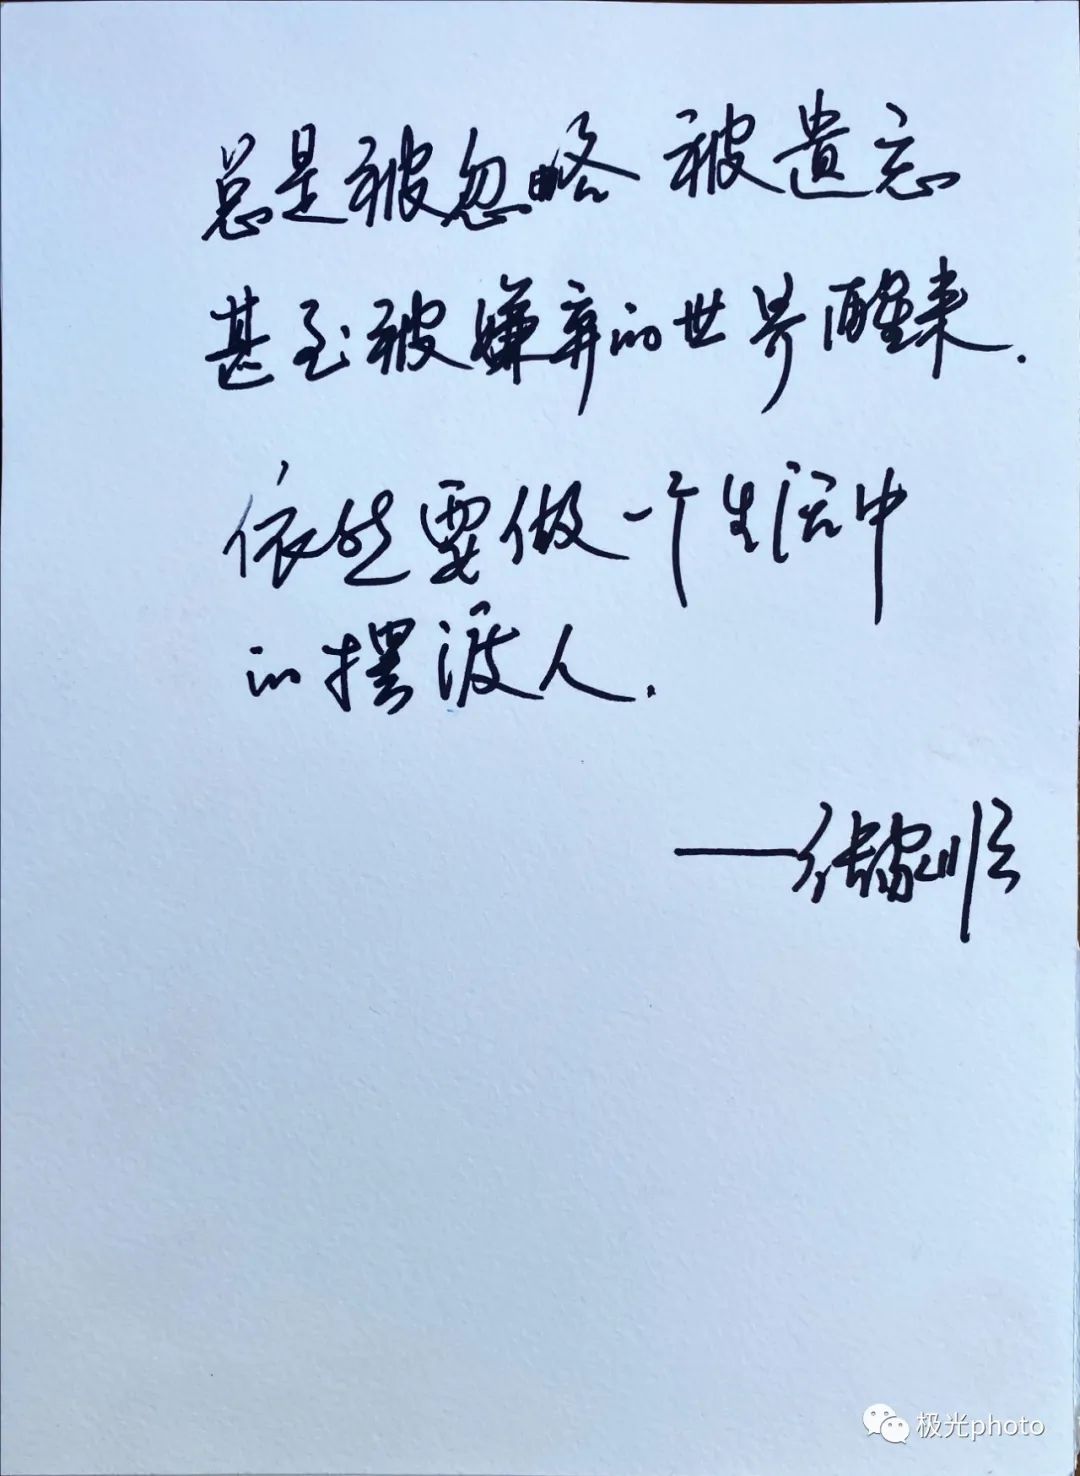 总是被忽略 被遗忘
甚至被嫌弃的世界醒来.
依然要做一个生活中
的摆渡人.
——张家顺
极光photo